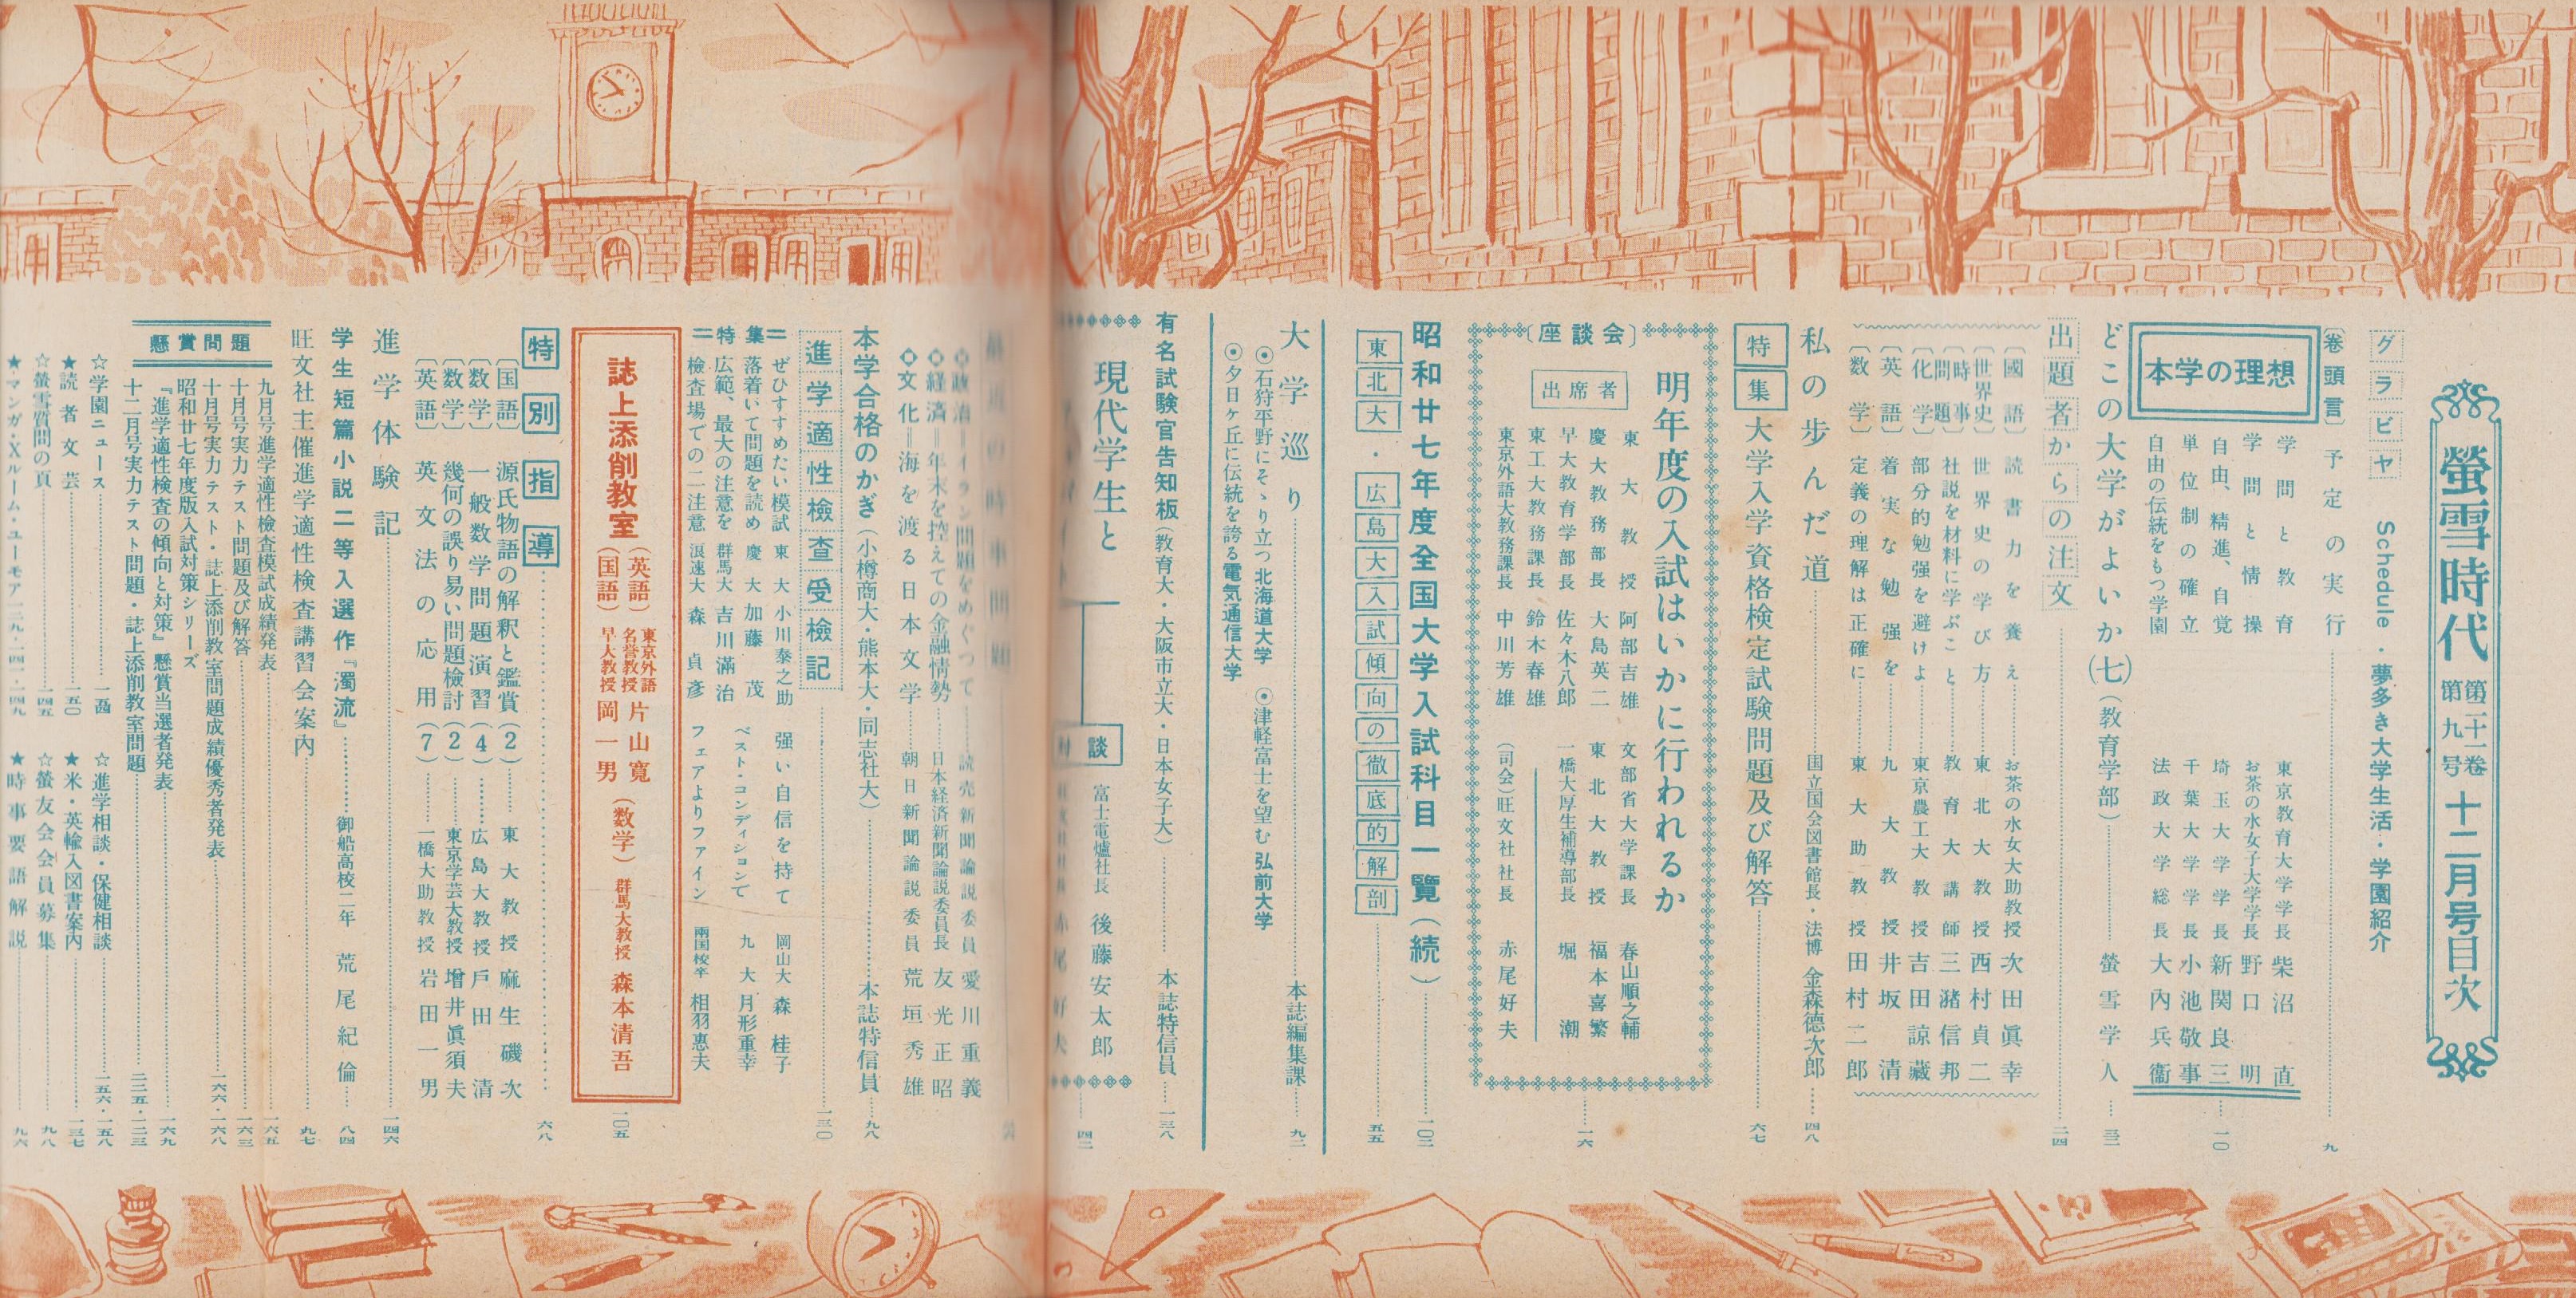 螢雪時代 第二十一巻第九号 十二月号目次
グラビヤ Schedule・夢多き大学生活・学園紹介
〔巻頭言〕予定の実行……九
本学の理想
学問と教育 東京教育大学学長 柴沼直
学問と情操 お茶の水女子大学学長 野口明
自由、精進、自覚 埼玉大学学長 新関良三……一〇
単位制の確立 千葉大学学長 小池敬事
自由の伝統をもつ学園 法政大学総長 大内兵衞
どこの大学がよいか(七)(教育学部)……螢雪学人……三二
出題者からの注文……二四
〔國語〕読書力を養え……お茶の水女大助教授 次田眞幸
〔世界史〕世界史の学び方……東北大教授 西村貞二
〔時事問題〕社説を材料に学ぶこと……教育大講師 三瀦信邦
〔化学〕部分的勉強を避けよ……東京農工大教授 吉田諒蔵
〔英語〕着実な勉強を……九大教授 井坂清
〔数学〕定義の理解は正確に……東大助教授 田村二郎
私の歩んだ道……国立国会図書館長・法博 金森德次郎……四八
特集 大学入学資格検定試験問題及び解答……六七
〔座談会〕
明年度の入試はいかに行われるか……一六
出席者
東大教授 阿部吉雄 文部省大学課長 春山順之輔
慶大教務部長 大島英二 東北大教授 福本喜繁
早大教育学部長 佐々木八郎 一橋大厚生補導部長 堀潮
東工大教務課長 鈴木春雄
東京外語大教務課長 中川芳雄 (司会)旺文社社長 赤尾好夫
昭和廿七年度全国大学入試科目一覽(続)……一〇二
東北大・広島大入試傾向の徹底的解剖……五五
大学巡り……本誌編集課……九二
◉石狩平野にそゝり立つ 北海道大学 ◉津軽富士を望む 弘前大学
◉夕日ケ丘に伝統を誇る電気通信大学
有名試験官告知板(教育大・大阪市立大・日本女子大)……本誌特信員……一三八
現代学生と
談 富士電爐社長 後藤安太郎……四二
の時事問題
政治＝イラン問題をめぐつて……読売新聞論説委員 愛川重義
経済＝年末を控えての金融情勢……日本経済新聞論説委員長 友光正昭
文化＝海を渡る日本文学 朝日新聞論説委員 荒垣秀雄
本学合格のかぎ(小樽商大・熊本大・同志社大)……本誌特信員……九八
進学適性檢査受檢記……一三〇
＝特集＝
ぜひすすめたい模試 東大 小川泰之助 強い自信を持て 岡山大 森桂子
落着いて問題を読め 慶大 加藤茂 ベスト・コンディションで 九大 月形重幸
広範、最大の注意を 群馬大 吉川滿治
檢査場での二注意 浪速大 森貞彦 フェアよりファイン 兩国校卒 相羽惠夫
誌上添削教室……一〇五
(英語)東京外語名誉教授 片山寬 (数学)群馬大教授 森本清吾
(国語)早大教授 岡一男
特別指導……六八
〔国語〕源氏物語の解釈と鑑賞(2)……東大教授 麻生磯次
〔数学〕一般数学問題演習(4)……広島大教授 戸田清
〔数学〕幾何の誤り易い問題檢討(2)……東京学芸大教授 增井眞須夫
〔英語〕英文法の応用(7)……一橋大助教授 岩田一男
進学体験記……一四六
学生短篇小説二等入選作『濁流』……御船高校二年 荒尾紀倫……八四
旺文社主催進学適性検査講習会案内……九七
懸賞問題
九月号進学適性檢査模試成績発表……一六五
十月号実力テスト問題及び解答……一六三
十月号実力テスト・誌上添削教室問題成績優秀者発表……一六六・一六八
昭和廿七年度版入試対策シリーズ
『進学適性検査の傾向と対策』懸賞当選者発表……一六九
十二月号実力テスト問題・誌上添削教室問題
☆学園ニュース ☆進学相談・保健相談……一五六・一五八
★読者文芸……一五〇 ★米・英輸入図書案内……一三七
☆螢雪質問の頁……一四五 ☆螢友会会員募集……九八
★マンガ・Xルーム・ユーモア ★時事要語解説……九六